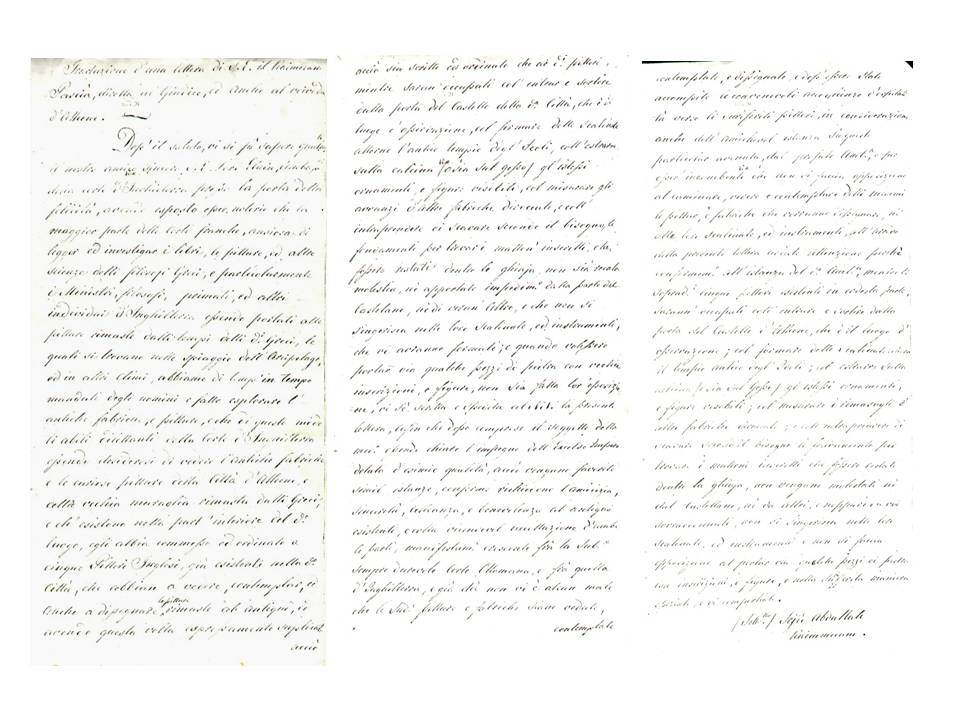 Traduzione d'una lettera di S.E. il Caimmecam
Pascià, diretta al Giudice, ed anche al Vaivoda
d'Athene.
Dopo il saluto, vi si fà sapere qualm.te
il nostro amico sincero S.E. Lord Elgin, Ambasc.e
della corte d'Inghilterra presso la porta della
felicità, avendo esposto esser notorio che la
maggior parte delle Corti franche, ansiose di
leggere ed investigare i libri, le pitture, ed altre
scienze delli filosofi Greci, e particolarmente
i Ministri, filosofi, primati, ed altri
individui d'Inghilterra essendo portati alle
pitture rimaste dalli tempi delli d.i Greci, le
quali si trovano nelle spiaggie dell'Arcipelago,
ed in altri climi, abbiano di tempo in tempo
mandati degli uomini e fatto esplorare l'
antiche fabriche, e pitture, e che di questo modo
li abili dilettanti della Corte d'Inghilterra
essendo desiderosi di vedere l'antiche fabriche
e le curiose pitture della Città d'Athene, e
della vecchia muraglia rimasta dalli Greci,
e ch'esistono nella part'interiore del d.o
luogo, egli abbia commesso ed ordinato a
cinque Pittori Inglesi, già esistenti nella d.a
Città, che abbian a vedere, contemplar, ed
anche a disegnare le pitture rimaste ab antiquo, ed
avendo questa volta espressamente supplicat.o
acciò
acciò sia scritto ed ordinato che ai d.i pittori,
mentre saran occupati col entrar e sortire
dalla porta del Castello della d.a Città, che è il
luogo d'osservazione, col formare delle scalinate
attorno l'antico tempio degl'Idoli, coll'estrarre
sulla calcina (osia sul gesso) gl'istessi
ornamenti, e figure visibili, col misurare gli
avanzi d'altre fabriche diroccate, e coll'
intraprendere di scavare secondo il bisogno le
fondamenta per trovar i mattoni inscritti, che
fossero restati dentro la ghiaja, non sia recata
molestia, nè apportato impedim.to dalla parte del
Castelano, nè di verun altro, e che non si
ingerisca nelle loro scalinate, ed instrumenti,
che vi avranno formati; e quando volessero
portar via qualche pezzi di pietra con vecchie
inscrizioni, e figure, non sia fatta lor opposizio-
ne, vi si è scritta e spedita col la presente
lettera, a fin che dopo compreso il soggetto della
med.a essendo chiaro l'impegno dell'Eccelso Impero
dotato d'esimie qualità, acciò vengano favorite
simil istanze, conforme richiedono l'amicizia,
sincerità, alleanza, e benevolenza ab antiquo
esistente, e colla vicendevol accettazione d'ambe
le parti, manifestam.te crescente frà la Sub.e
sempre durevole Corte Ottomana, e frà quella
d'Inghilterra, e già che non vi è alcun male
che le sud.e pitture e fabriche siano vedute,
contemplate
contemplate, e disegnate, e dopo esser state
accomplite le convenevoli accoglienze d'ospitali-
tà verso li suriferiti pittori, in considerazione
anche dell'amichevol istanza su questo
particolar avvenuta, dal prefato Amb.re, e per
esser incombente che non si faccia opposizione
al caminare, vedere e contemplare delli medesimi
le pitture, e fabriche che vorranno disegnare, nè
alle loro scalinate, ed instrumenti, all'arrivo
della presente lettera usiate attenzione perchè
conformem.te all'istanza del d.o Amb.re, mentre li
sopradd.i cinque pittori esistenti in codesta parte,
saranno occupati coll'entrare e sortire dalla
porta del Castello d'Athene, che è il luogo d'
osservazione; col formare delle scalinate attorno
il tempio antico degl'Idoli; col estrarre sulla
calcina (osia sul Gesso) gl'istessi ornamenti,
e figure visibili; col misurare i rimasugli d'
altre fabriche diroccate; e coll'intraprendere di
scavare secondo il bisogno le fondamenta per
trovare i mattoni inscritti che fossero restati
dentro la ghiaja, non vengano molestati nè
dal Castellano, nè da altri, e neppure da voi
sovraccennati, non si ingerisca nelle loro
scalinate, ed instrumenti e non si faccia
opposizione al portar via qualche pezzi di pietra
con inscrizioni, e figure, e nella su.detta maniera
operiate e vi comportiate.
(Sott.tto) Sejid Abdullah
Caimmecam.